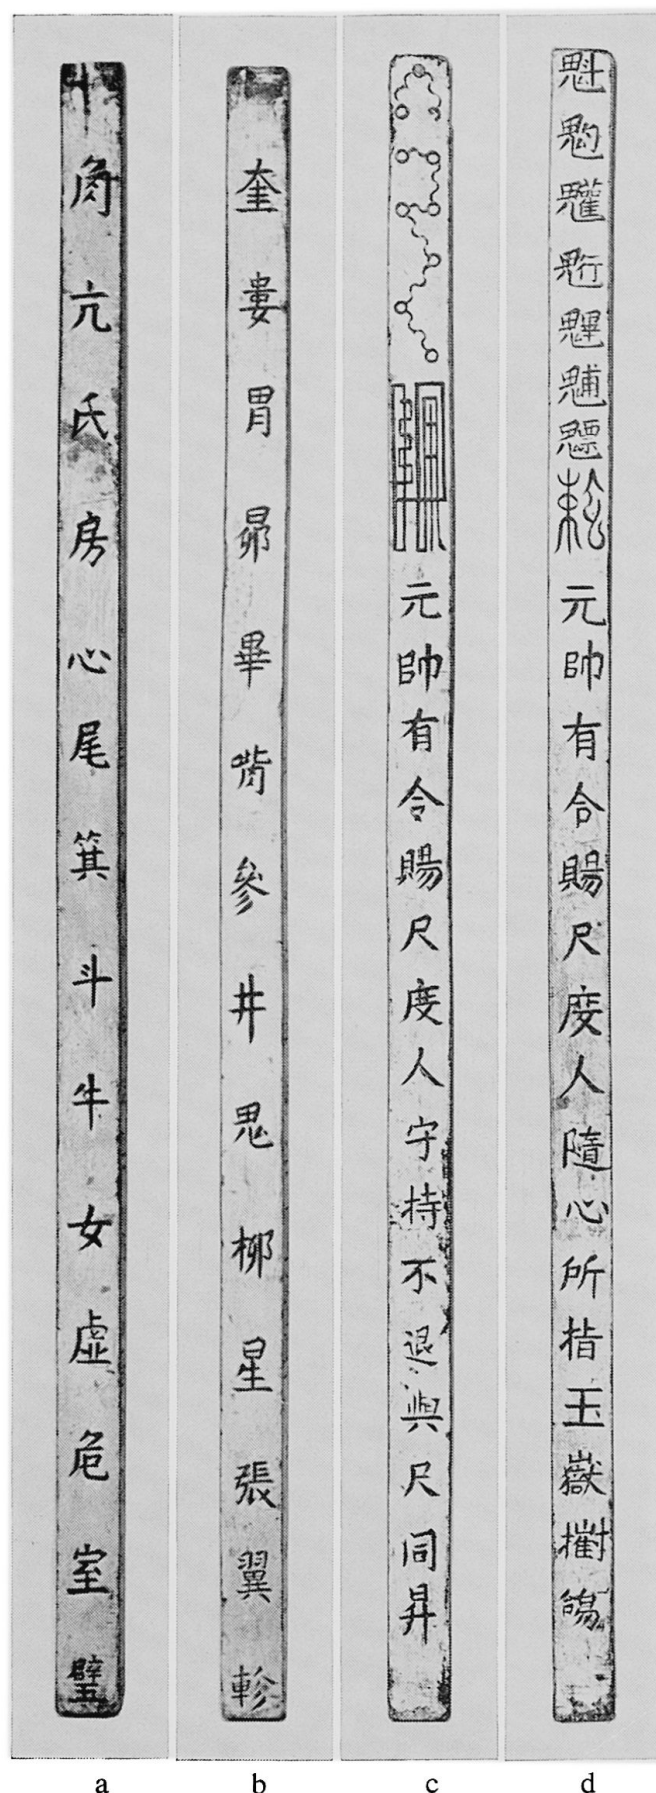 角亢氏房心尾箕斗牛女虛危室璧
奎婁胃昴畢觜參井鬼柳星張翼軫
元帥有令賜尺度人守持不退與尺同昇
魁魓魒元帥有令賜尺度人隨心所指玉嶽
a b c d